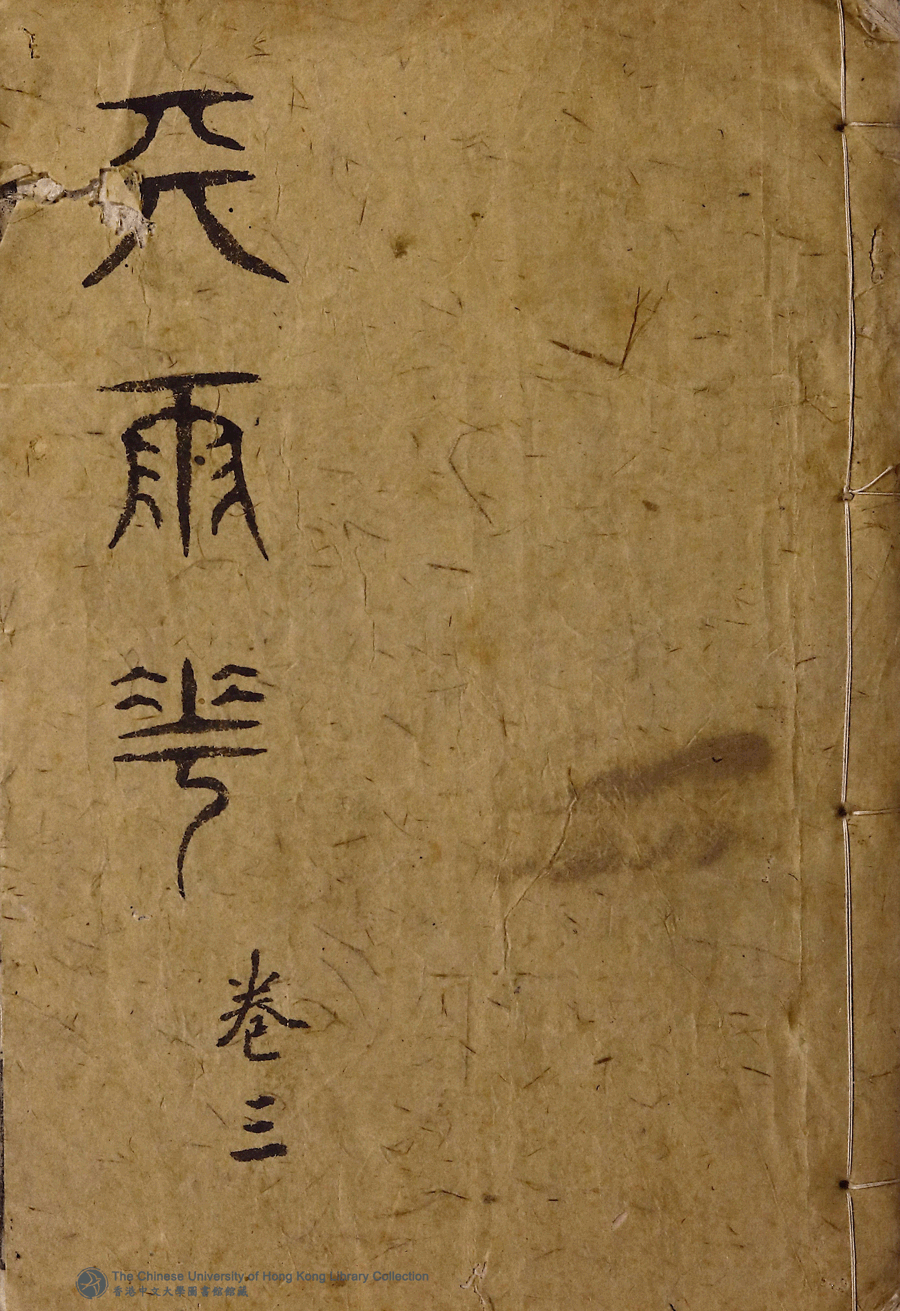 天雨華
卷三
The Chinese University of Hong Kong Library Collection
香港中文大學圖書館館藏